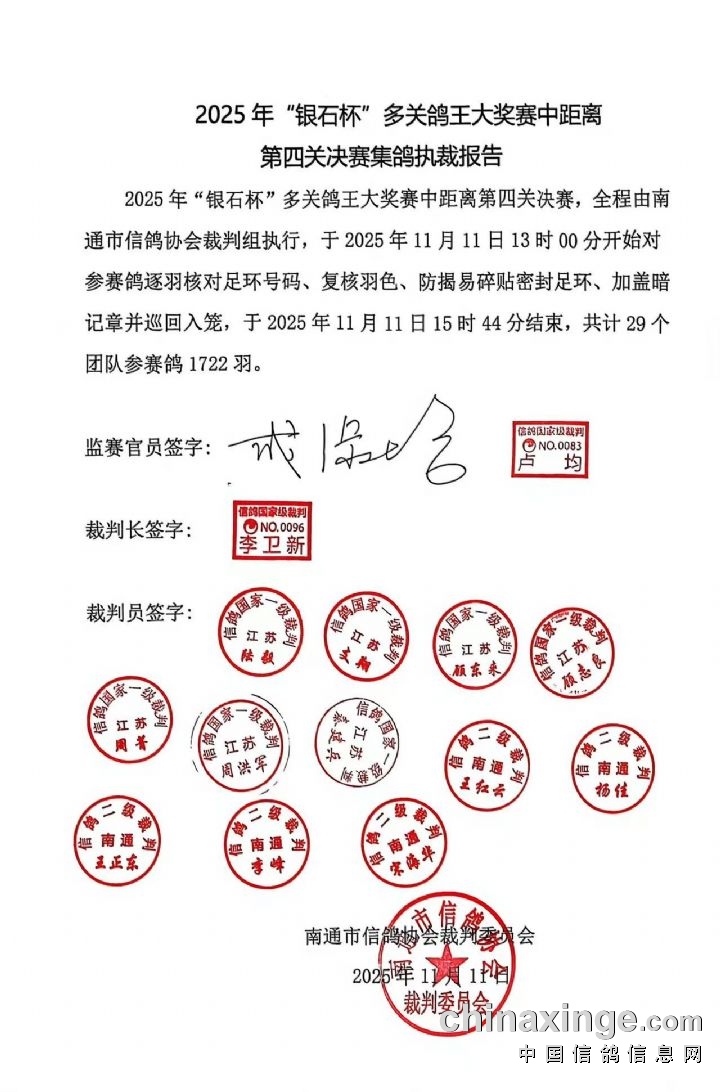 2025年“银石杯”多关鸽王大奖赛中距离
第四关决赛集鸽执裁报告
2025年“银石杯”多关鸽王大奖赛中距离第四关决赛，全程由南
通市信鸽协会裁判组执行，于2025年11月11日13时00分开始对
参赛鸽逐羽核对足环号码、复核羽色、防揭易碎贴密封足环、加盖暗
记章并巡回入笼，于2025年11月11日15时44分结束，共计29个
团队参赛鸽1722羽。
监赛官员签字：
信鸽国家级裁判
NO.0083
卢均
裁判长签字：
信鸽国家级裁判
NO.0096
李卫新
裁判员签字：
信鸽国家一级裁判
江苏
陆毅
信鸽国家一级裁判
江苏
信鸽国家一级裁判
江苏
顾东来
信鸽国家一级裁判
江苏
顾志良
信鸽国家一级裁判
江苏
周菁
信鸽国家一级裁判
江苏
周洪军
信鸽国家一级裁判
江苏
信鸽二级裁判
南通
王红云
信鸽二级裁判
南通
杨佳
信鸽二级裁判
南通
王正东
信鸽二级裁判
南通
李峰
信鸽二级裁判
南通
宋海华
南通市信鸽协会裁判委员会
2025年11月11日
南通市信鸽协会
裁判委员会
chinaxinge.com
中国信鸽信息网